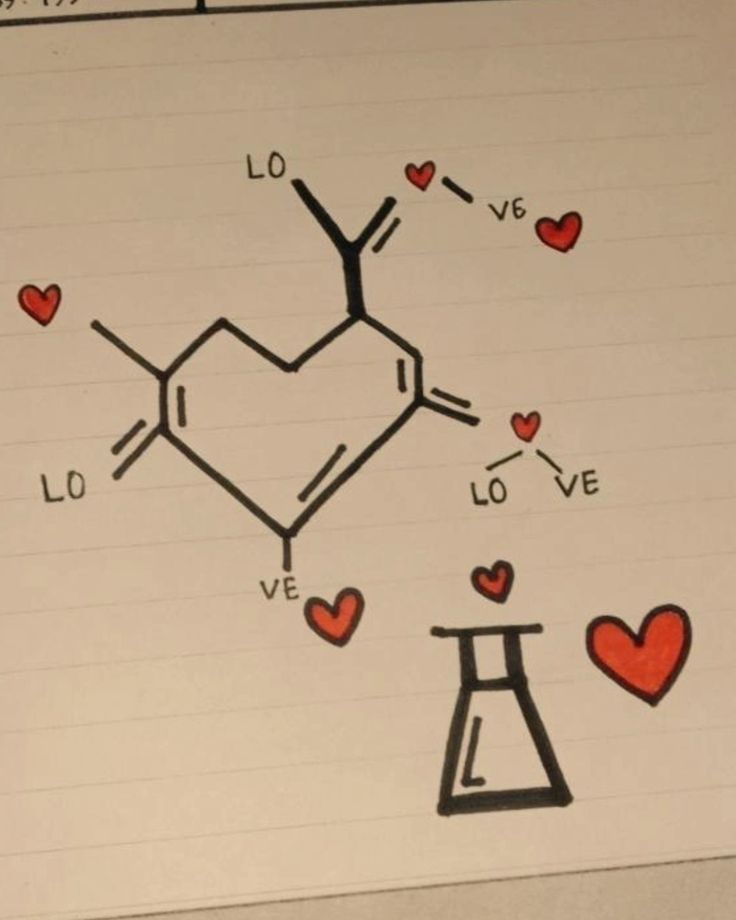 LO
VE
LO
LO VE
VE